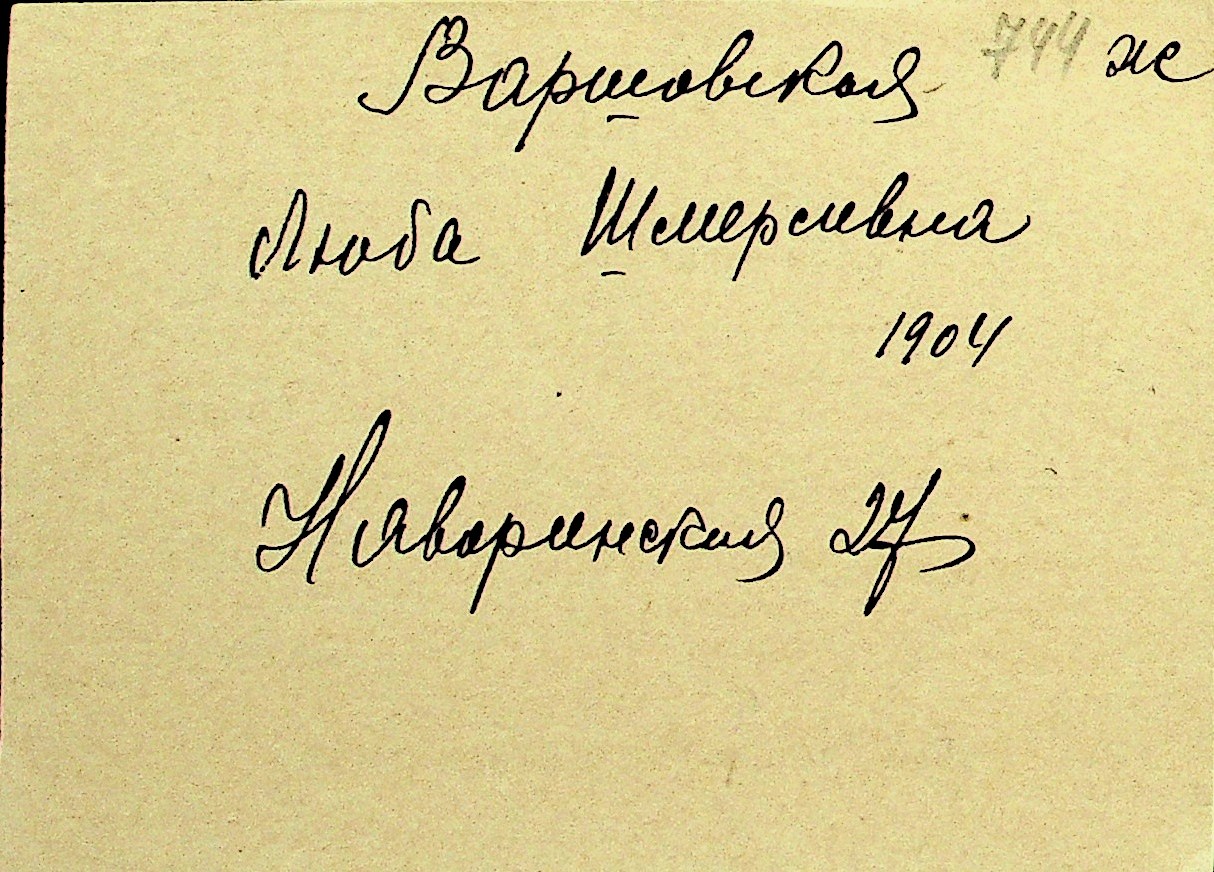 Варшовская 744 ж
Люба Шмерлевна
1904
Наваринская 27